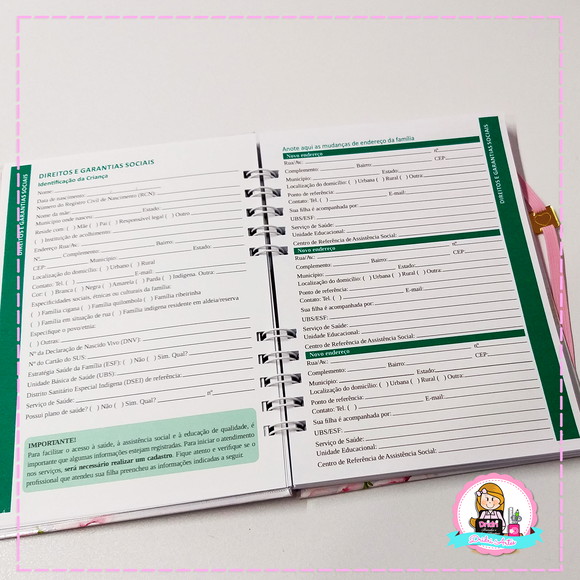 DIREITOS E GARANTIAS SOCIAIS
DIREITOS E GARANTIAS SOCIAIS
Identificação da Criança
Nome
Data de nascimento:
Número do Registro Civil de Nascimento (RCN):
Nome da mãe:
Município onde nasceu: Estado:
Reside com: ( ) Mãe ( ) Pai ( ) Responsável legal ( ) Outro
( ) Instituição de acolhimento:
Endereço Rua/Av:
Nº Complemento: Bairro: Estado:
CEP: Município:
Localização do domicílio: ( ) Urbano ( ) Rural
Contato: Tel. ( ) E-mail:
Cor: ( ) Branca ( ) Negra ( ) Amarela ( ) Parda ( ) Indígena. Outra:
Especificidades sociais, étnicas ou culturais da família:
( ) Família cigana ( ) Família quilombola ( ) Família ribeirinha
( ) Família em situação de rua ( ) Família indígena residente em aldeia/reserva
Especifique o povo/etnia:
( ) Outras:
Nº da Declaração de Nascido Vivo (DNV):
Nº do Cartão do SUS:
Estratégia Saúde da Família (ESF): ( ) Não ( ) Sim. Qual?
Unidade Básica de Saúde (UBS):
Distrito Sanitário Especial Indígena (DSEI) de referência:
Serviço de Saúde: nº
Possui plano de saúde? ( ) Não ( ) Sim. Qual?
IMPORTANTE!
Para facilitar o acesso à saúde, à assistência social e à educação de qualidade, é
importante que algumas informações estejam registradas. Para iniciar o atendimento
nos serviços, será necessário realizar um cadastro. Fique atento e verifique se o
profissional que atendeu sua filha preencheu as informações indicadas a seguir.
Anote aqui as mudanças de endereço da família
Novo endereço
Rua/Av: nº
Complemento: Bairro: CEP
Município: Estado:
Localização do domicílio: ( ) Urbana ( ) Rural ( ) Outra:
Ponto de referência:
Contato: Tel. ( ) E-mail:
Sua filha é acompanhada por:
UBS/ESF:
Serviço de Saúde:
Unidade Educacional:
Centro de Referência de Assistência Social:
Novo endereço
Rua/Av: nº
Complemento: Bairro: CEP
Município: Estado:
Localização do domicílio: ( ) Urbana ( ) Rural ( ) Outra:
Ponto de referência:
Contato: Tel. ( ) E-mail:
Sua filha é acompanhada por:
UBS/ESF:
Serviço de Saúde:
Unidade Educacional:
Centro de Referência de Assistência Social:
Novo endereço
Rua/Av: nº
Complemento: Bairro: CEP
Município: Estado:
Localização do domicílio: ( ) Urbana ( ) Rural ( ) Outra:
Ponto de referência:
Contato: Tel. ( ) E-mail:
Sua filha é acompanhada por:
UBS/ESF:
Serviço de Saúde:
Unidade Educacional:
Centro de Referência de Assistência Social:
DIREITOS E GARANTIAS SOCIAIS